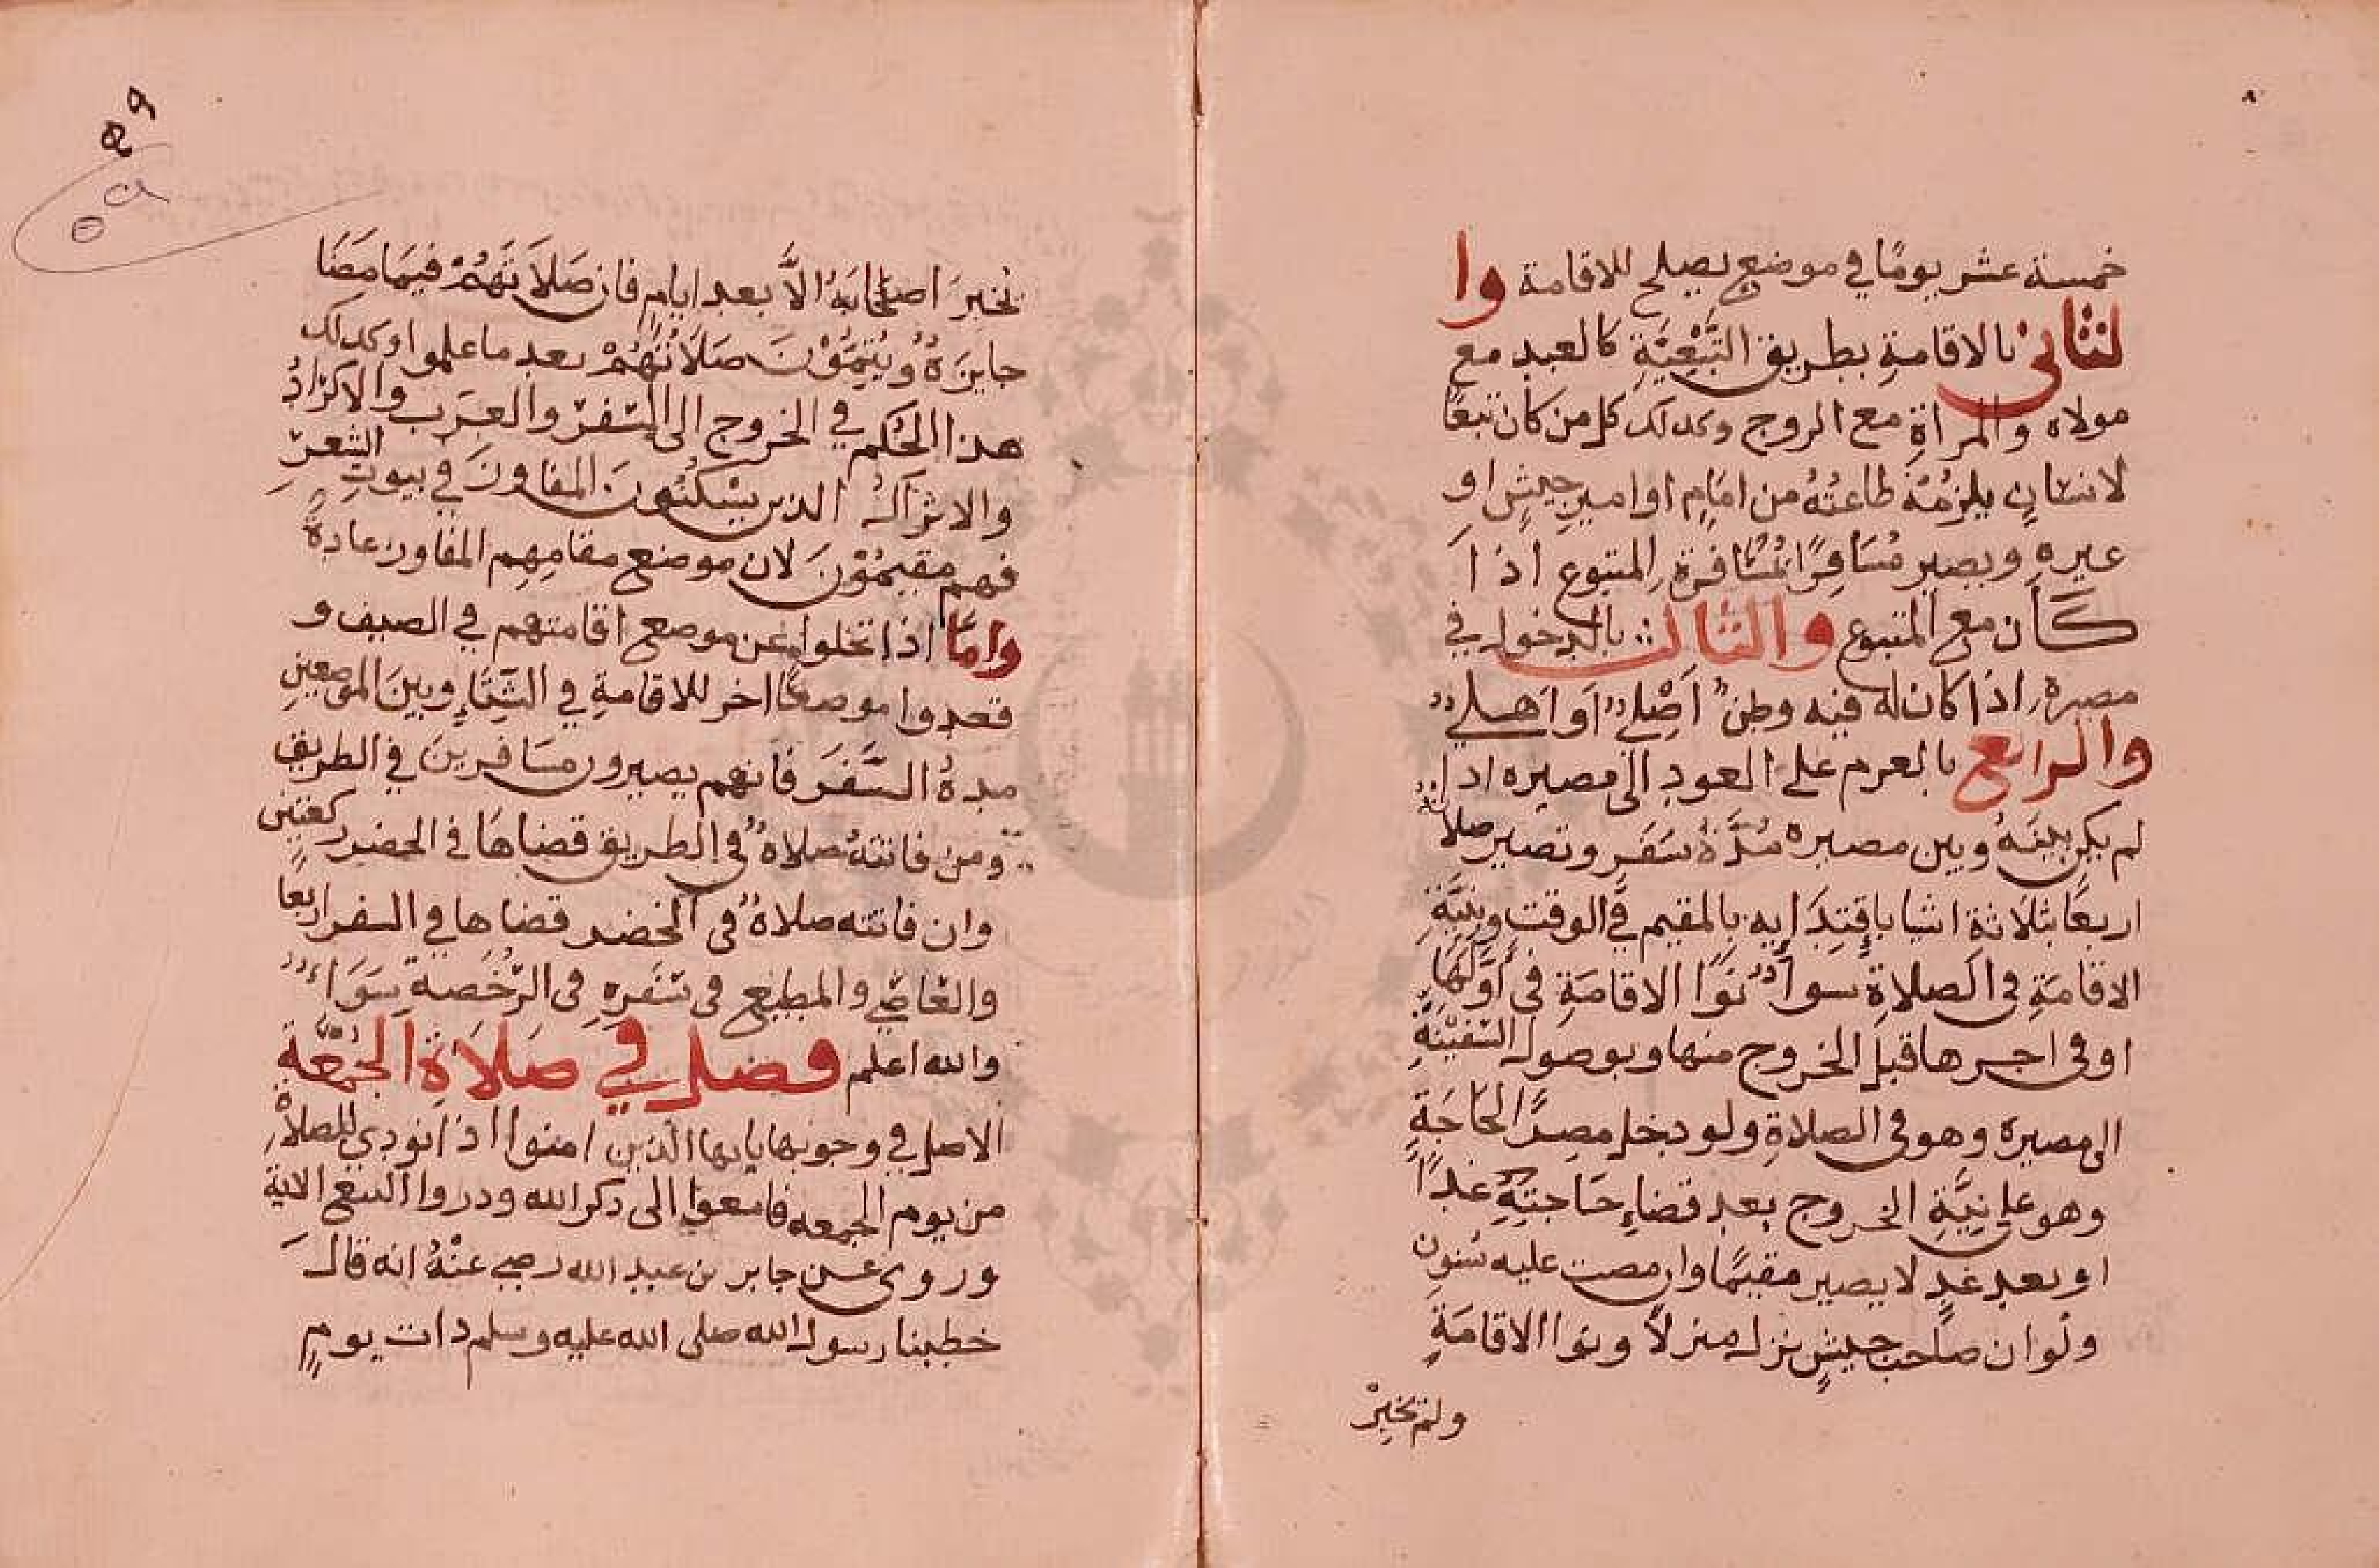 خمسة عشر يومًا في موضع يصلح للاقامة وا
لثاني بالاقامةِ بطريق التَّبْعِيَّةِ كالعبد مع
مولاه والمراةِ مع الزوج وكدلك كل من كان تبعًا
لانسانٍ يلزمُهُ طاعتُهُ من امَامٍ او اميرِ جيشٍ او
غيرهِ ويصير مُسَافِرًا بمُسَافرة المتبوع اذا
كَان مع المتبوع والثالث بالدخول في
مصره اذا كان له فيه وطنٌ اَصْليٌ اَو اَهليٌ
والرابع بالعزم على العود الى مصيره ادا
لم يكن بينَهُ وبين مصيره مُدَّةُ سَفَرٍ وتصير صلاتهُ
اربعًا بثلاثة اشيا باِقتِدَايه بالمقيم في الوقت وبنيَّةِ
الاقامَةِ في الصلاةِ سواءٌ نوَا الاقامَةِ في اَوّلهَا
او في اخرها قبل الخروج منها وبوصول السَّفينةِ
الى مصيره وهو في الصلاةِ ولو دخل مصرًا لحاجَةٍ
وهو على نيَّةِ الخروج بعد قضاءِ حَاجتِهِ غدًا
او بعد غدٍ لا يصير مقيمًا وان مصت عليه سُنون
ولو ان صاحب جيشٍ نزل منزلاً ونوا الاقامَةِ
ولم يخبِرْ
٥٩
يخبِرَ اصحَابَهُ الاَّ بعد ايامٍ فان صَلاَتَهُمْ فيمَا مضَا
جايزةٌ ويُتِمّوْنَ صَلاَتَهُمْ بعد ما علموا وكدلك
هدا الحُكم في الخروج الى السّفرْ والعرَب والاكرَادُ
والاترَاكُ الذين يسْكنُونَ المفاوزَ في بيوتِ الشعرْ
فهم مقيمُوْنَ لان موضع مقامِهِم المفاوز عادةً
وامّا اذا تخلوا عن موصع اقامتهم في الصيف و
قصدوا موصعًا اخر للاقامةِ في الشِّتَاءِ وبينَ الموصعين
مدةُ السَّفَرَ فانهم يصيرون مسَافرينَ في الطريق
ومن فاتتهُ صلاةٌ في الطريق قضاهَا في الحضر ركعتين
وان فاتته صلاةٌ في الحضر قضاها في السفر اربعًا
والعَاصي والمطيع في سَفرِهِ في الرّخُصة سَوَاءٌ
والله اعلم فصل في صَلاَةِ الجُمُعَة
الاصل في وجوبها يايها الذين امنوا اذا نودي للصلاةِ
من يوم الجمعه فاسعوا الى دكر الله ودروا البيع الاية
وروى عن جابر بن عبد الله رضي عنْهُ انه قالَ
خطبنا رسول الله صلى الله عليه وسلم دات يومٍ